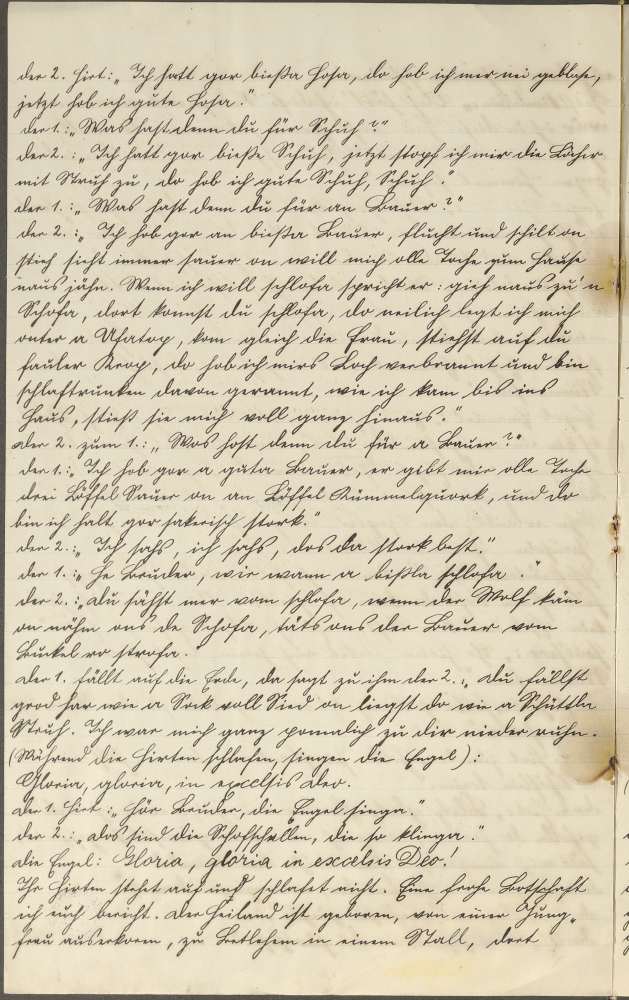 der 2. Hirt: „Ich hatt gor bießa Hosa, do hob ich mer nei geblose,
jetzt hob ich gute Hosa."
der 1.: „Was hast denn du für Schuh?"
der 2.: „Ich hatt gor bieße Schuh, jetzt stopf ich mir die Löcher
mit Struh zu, do hob ich gute Schuh, Schuh."
der 1.: „Was hast denn du für an Bauer?"
der 2.: „Ich hob gor an bießa Bauer, flucht und schilt on
stieh sieht immer sauer on will mich olle Toche zum Hause
naus jähn. Wenn ich will schlofa spricht er: gieh naus zu'n
Schofa, dort konnst du schlofa, do neilich legt ich mich
onter a Ufatop, kom gleich die Frau, stiehst auf du
fauler Krop, do hob ich mirs Loch verbrannt und bin
schlaftrunken davon gerannt, wie ich kam bis ins
Haus, stieß sie mich voll ganz hinaus."
Der 2. zum 1.: „Wos host denn du für a Bauer?"
der 1.: „Ich hob gor a guta Bauer, er gibt mir olle Toche
drei Löffel Sauer on an Löffel Kümmelquork, und do
bin ich halt gor sakerisch stork."
der 2.: „Ich sahs, ich sahs, dos da stork best."
der 1.: „He Bruder, wir wann a bißla schlofa."
der 2.: „Du sähst mer vom schlofa, wenn der Wolf käm
on nähm ons de Schofa, täts ons der Bauer vom
Buckel ro strofa."
Der 1. fällt auf die Erde, da sagt zu ihm der 2.: „Du fällst
grod har wie a Sock voll Sied on liegst do wie a Schüttla
Struh. Ich war mich ganz pomalich zu dir nieder ruhn.
(Während die Hirten schlafen, singen die Engel):
Gloria, gloria, in excelsis Deo.
Der 1. Hirt: „Hör Bruder, die Engel singa."
der 2.: „Dos sind die Schofschallen, die so klinga."
Die Engel: Gloria, gloria in excelsis Deo!
Ihr Hirten stehet auf und schlafet nicht. Eine frohe Botschaft
ich euch bericht. Der Heiland ist geboren, von einer Jung=
frau auserkoren, zu Betlehem in einem Stall, dort